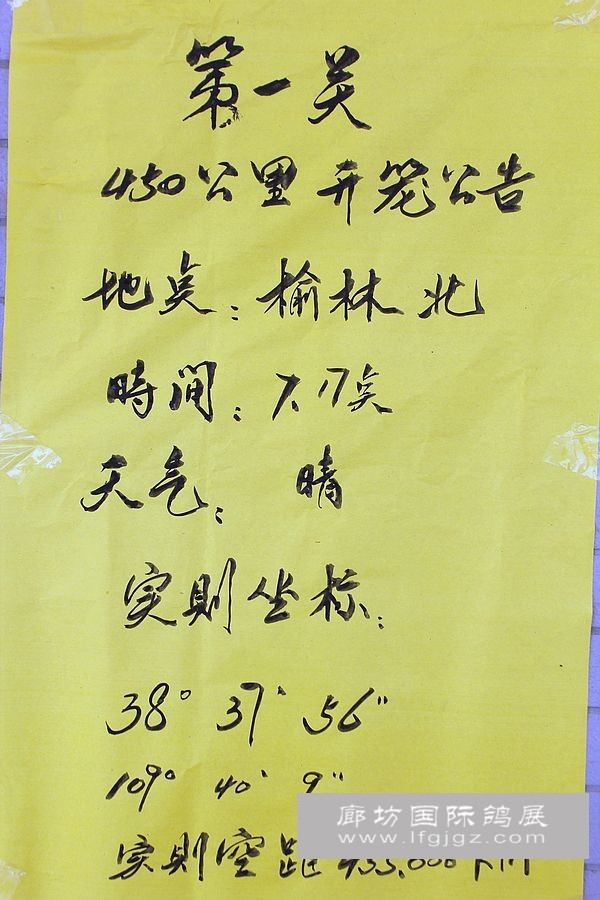 第一关
450公里开笼公告
地点:榆林北
時間:7.17点
天气:晴
实则坐标:
38° 37' 56"
109° 40' 9"
实則空距
廊坊国际鸽展
www.lfgjgz.com